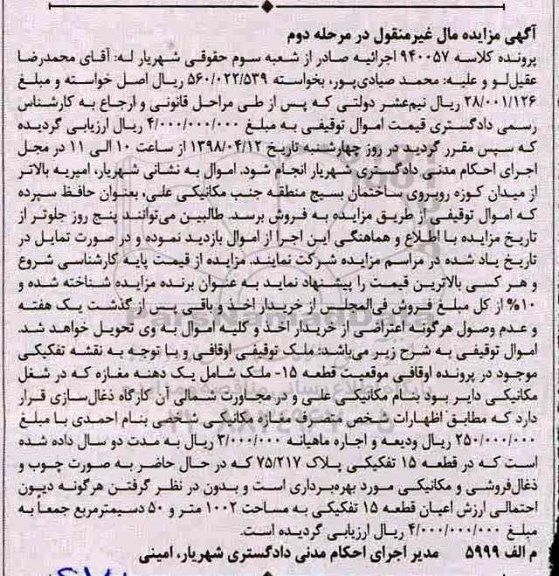 آگهی مزایده مال غیرمنقول در مرحله دوم
پرونده کلاسه ۹۴۰۰۵۷ اجرائیه صادر از شعبه سوم حقوقی شهریار له: آقای محمدرضا
عقیل‌لو و علیه: محمد صیادی‌پور، بخواسته ۵۶۰/۰۲۲/۵۳۹ ریال اصل خواسته و مبلغ
۲۸/۰۰۱/۱۲۶ ریال نیم‌عشر دولتی که پس از طی مراحل قانونی و ارجاع به کارشناس
رسمی دادگستری قیمت اموال توقیفی به مبلغ ۴/۰۰۰/۰۰۰/۰۰۰ ریال ارزیابی گردیده
که سپس مقرر گردید در روز چهارشنبه تاریخ ۱۳۹۸/۰۴/۱۲ از ساعت ۱۰ الی ۱۱ در محل
اجرای احکام مدنی دادگستری شهریار انجام شود. اموال به نشانی شهریار، امیریه بالاتر
از میدان کوزه روبروی ساختمان بسیج منطقه جنب مکانیکی علی، بعنوان حافظ سپرده
که اموال توقیفی از طریق مزایده به فروش برسد. طالبین می‌توانند پنج روز جلوتر از
تاریخ مزایده با اطلاع و هماهنگی این اجرا از اموال بازدید نموده و در صورت تمایل در
تاریخ یاد شده در مراسم مزایده شرکت نمایند. مزایده از قیمت پایه کارشناسی شروع
و هر کسی بالاترین قیمت را پیشنهاد نماید به عنوان برنده مزایده شناخته شده و
۱۰% از کل مبلغ فروش فی‌المجلس از خریدار اخذ و باقی پس از گذشت یک هفته
و عدم وصول هرگونه اعتراضی از خریدار اخذ و کلیه اموال به وی تحویل خواهد شد.
اموال توقیفی به شرح زیر می‌باشد: ملک توقیفی اوقافی و با توجه به نقشه تفکیکی
موجود در پرونده اوقافی موقعیت قطعه ۱۵- ملک شامل یک دهنه مغازه که در شغل
مکانیکی دایر بود بنام مکانیکی علی و در مجاورت شمالی آن کارگاه ذغال‌سازی قرار
دارد که مطابق اظهارات شخص مستاجر مغازه مکانیکی شخصی بنام احمدی با مبلغ
۲۵۰/۰۰۰/۰۰۰ ریال ودیعه و اجاره ماهیانه ۳/۰۰۰/۰۰۰ ریال به مدت دو سال داده شده
است که در قطعه ۱۵ تفکیکی پلاک ۷۵/۲۱۷ که در حال حاضر به صورت چوب و
ذغال‌فروشی و مکانیکی مورد بهره‌برداری است و بدون در نظر گرفتن هرگونه دیون
احتمالی ارزش اعیان قطعه ۱۵ تفکیکی به مساحت ۱۰۰۲ متر و ۵۰ دسیمترمربع جمعاً به
مبلغ ۴/۰۰۰/۰۰۰/۰۰۰ ریال ارزیابی گردیده است.
م الف ۵۹۹۹ مدیر اجرای احکام مدنی دادگستری شهریار، امینی